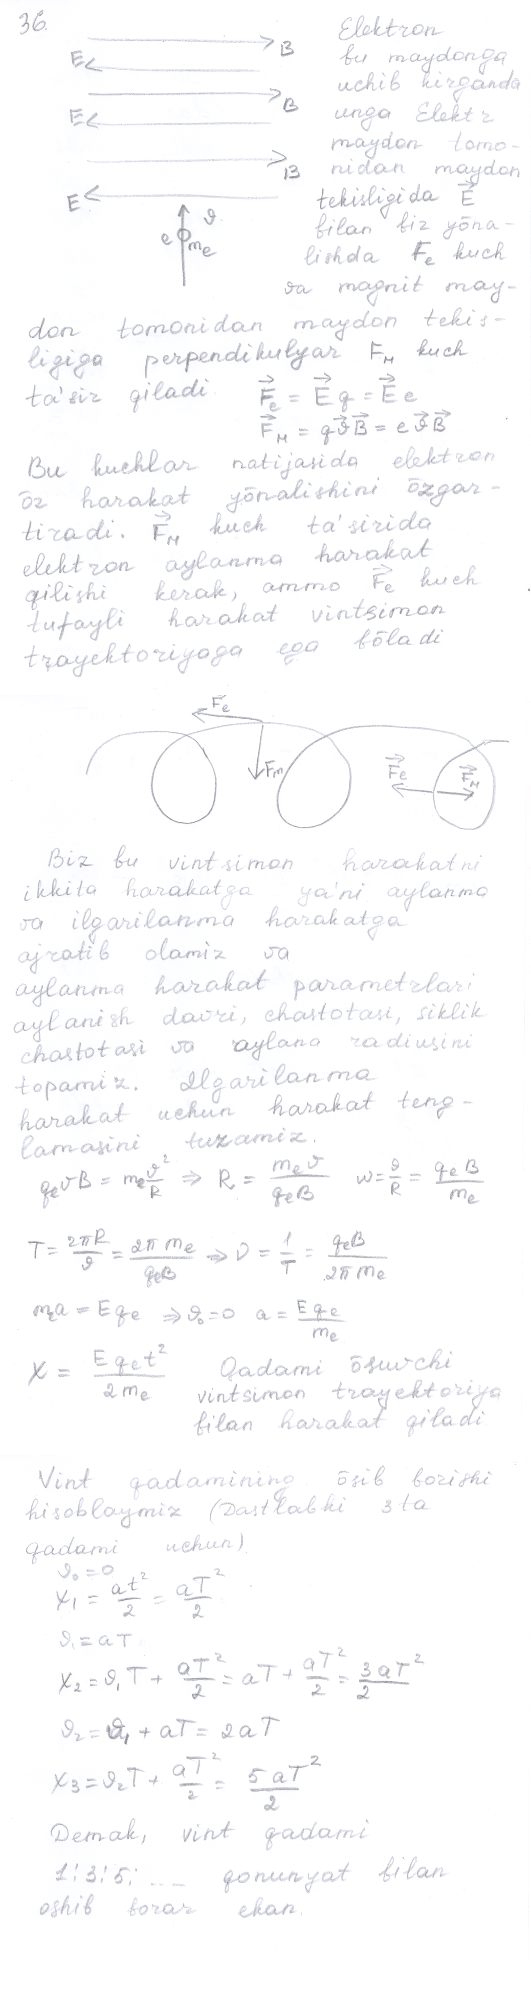 36.
Elektron
bu maydonga
uchib kirganda
unga Elektr
maydon tomo-
nidan maydon
tekisligida E⃗
bilan bir yōna-
lishda Fe kuch
va magnit may-
E B
E B
E B
e me ϑ
don tomonidan maydon tekis-
ligiga perpendikulyar Fм kuch
ta'sir qiladi F⃗e = E⃗q = E⃗e
F⃗м = qϑ⃗B⃗ = eϑ⃗B⃗
Bu kuchlar natijasida elektron
ōz harakat yōnalishini ōzgar-
tiradi. F⃗м kuch ta'sirida
elektron aylanma harakat
qilishi kerak, ammo F⃗e kuch
tufayli harakat vintsimon
trayektoriyaga ega bōladi
F⃗e Fm F⃗e F⃗м
Biz bu vintsimon harakatni
ikkita harakatga ya'ni aylanma
va ilgarilanma harakatga
ajratib olamiz va
aylanma harakat parametrlari
aylanish davri, chastotasi, siklik
chastotasi va aylana radiusini
topamiz. Ilgarilanma
harakat uchun harakat teng-
lamasini tuzamiz.
qeϑB = me ϑ²/R ⇒ R = meϑ/qeB ω = ϑ/R = qeB/me
T = 2πR/ϑ = 2π me/qeB ⇒ ν = 1/T = qeB/2π me
mea = Eqe ⇒ ϑ₀=0 a = Eqe/me
X = Eqet²/2me Qadami ōsuvchi
vintsimon trayektoriya
bilan harakat qiladi
Vint qadamining ōsib borishi
hisoblaymiz (Dastlabki 3 ta
qadami uchun)
ϑ₀=0
X₁ = at²/2 = aT²/2
ϑ₁ = aT
X₂ = ϑ₁T + aT²/2 = aT + aT²/2 = 3aT²/2
ϑ₂ = ϑ₁ + aT = 2aT
X₃ = ϑ₂T + aT²/2 = 5aT²/2
Demak, vint qadami
1:3:5: .... qonunyat bilan
oshib borar ekan.